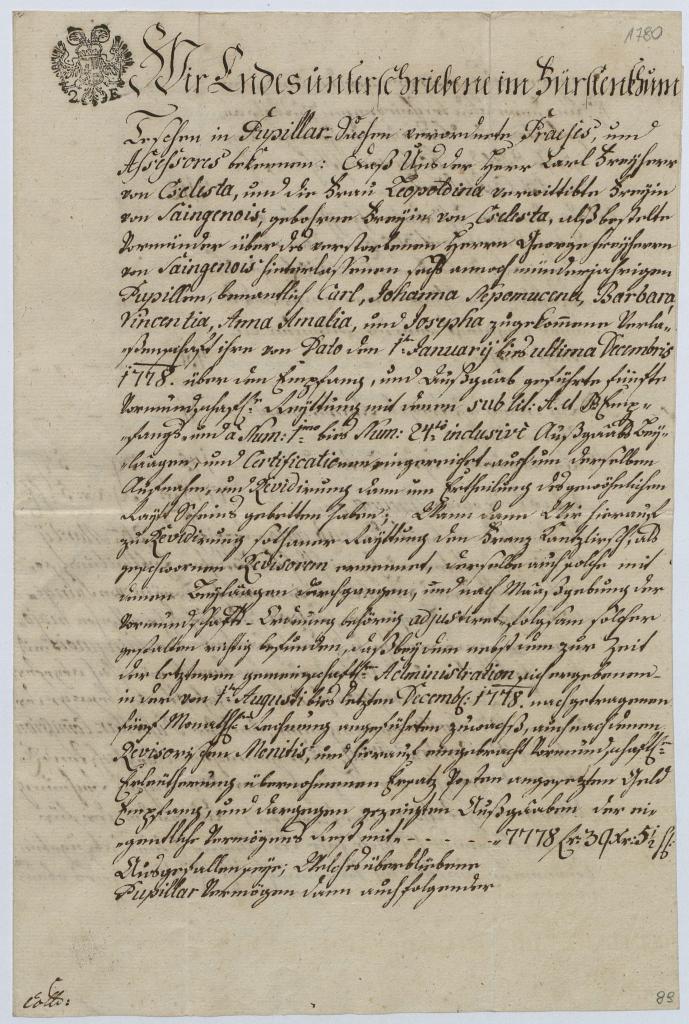 1780
2 K
Wir Endesunterschriebene im Fürstenthum
Teschen in Pupillar-Sachen verordnete Praeses, und
Assessores bekennen: Daß Uns der Herr Carl Freyherr
von Cselesta, und die Frau Leopoldina verwittibte Freyin
von Saingenois, gebohrne Freyin von Cselesta, alß bestelte
Vormünder über des verstorbenen Herrn George Freyherrn
von Saingenois hinterlassenen sechs annoch münderjahrigen
Pupillen, benantlich Carl, Johanna Nepomucena, Barbara,
Vincentia, Anna Amalia, und Josepha zugekommene Verla-
ßenschaft ihre von Dato den 1t January bies ultima Decembris
1778. über den Empfang, und Außgaab geführte fünfte
Vormundschafts Rayttung mit denen sub lit: A. et B Emp-
fangs- und a Num: 1mo bies Num: 24to inclusive Außgaabs Bey-
laagen, und Certificationen eingereichet, auch um derselben
Aufnahm, und Revidirung dann um Ertheilung des gewöhnlichen
Rayt Scheins gebetten haben; Wann dann Wir hierauf
zu Revidirung sothaner Rayttung den Franz Kantzliesch, als
geschwornen Revisorem ernennet, derselbe auch solche mit
denen Beylaagen durchgangen, und nach Maasgebung der
Vormundschafts-Ordnung behörig adjustiret, folgsam solcher
gestalten richtig befunden, daß bey dem nebst dem zur Zeit
der letzteren gemeinschaftl. Administration sich ergebenen
in der von 1t Augusti bies letzten Decemb: 1778. nachgetragenen
fünf Monathl. Rechnung angeführten zuwachs, auch nach denen
Revisorischen Monitis, und hierauf eingebracht Vormundschaftl.
Erleütherung übernohmenen Ersatz Posten angesetzten Geld
Empfang, und dargegen gezeugten Außgaaben der ei-
gentliche Vermögens Rest mit - - - - - 7778 fr: 39 xr: 5½
Ausgefallen seye; Welches überbliebene
Pupillar Vermögen dann auch folgender
89